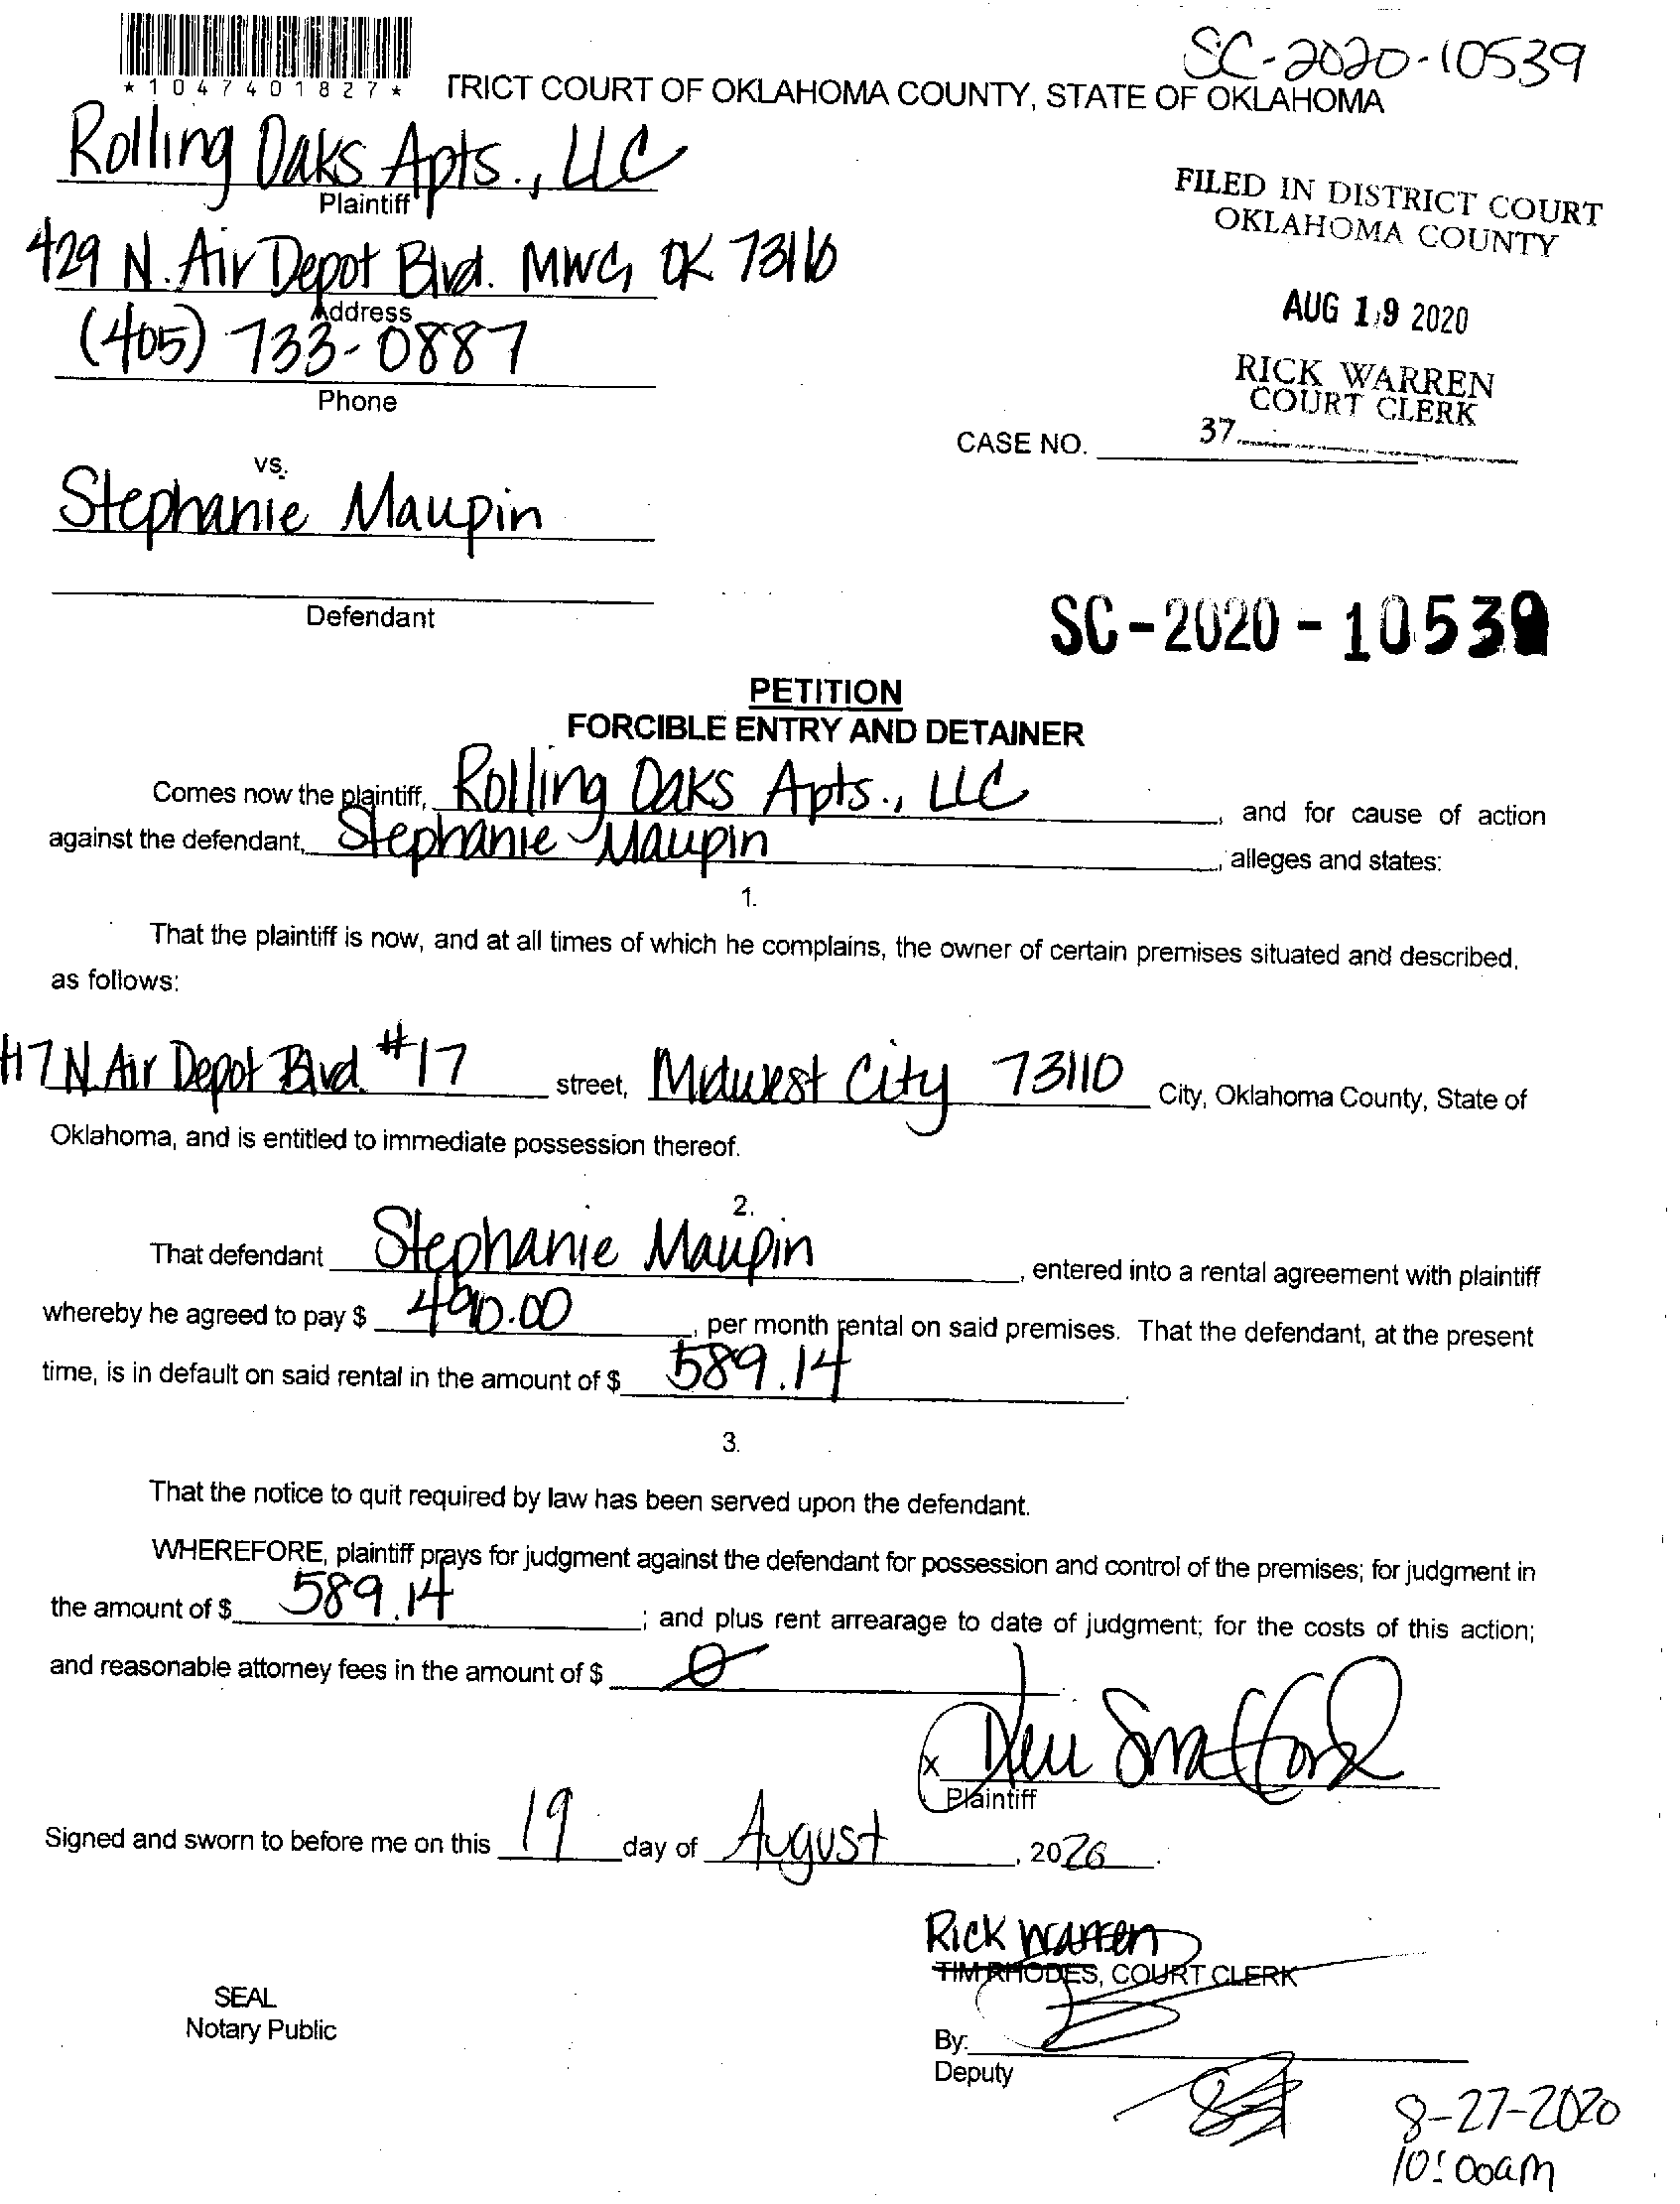 SC-2020-10539
*1047401827*
TRICT COURT OF OKLAHOMA COUNTY, STATE OF OKLAHOMA
Rolling Oaks Apts., LLC
Plaintiff
FILED IN DISTRICT COURT
OKLAHOMA COUNTY
429 N. Air Depot Blvd. MWC, OK 73110
Address
AUG 19 2020
(405) 733-0887
Phone
RICK WARREN
COURT CLERK
37
CASE NO.
vs.
Stephanie Maupin
Defendant
SC-2020-10539
PETITION
FORCIBLE ENTRY AND DETAINER
Comes now the plaintiff, Rolling Oaks Apts., LLC, and for cause of action
against the defendant, Stephanie Maupin, alleges and states:
1.
That the plaintiff is now, and at all times of which he complains, the owner of certain premises situated and described,
as follows:
417 N Air Depot Blvd. #17 street, Midwest City 73110 City, Oklahoma County, State of
Oklahoma, and is entitled to immediate possession thereof.
2.
That defendant Stephanie Maupin, entered into a rental agreement with plaintiff
whereby he agreed to pay $ 490.00, per month rental on said premises. That the defendant, at the present
time, is in default on said rental in the amount of $ 589.14.
3.
That the notice to quit required by law has been served upon the defendant.
WHEREFORE, plaintiff prays for judgment against the defendant for possession and control of the premises; for judgment in
the amount of $ 589.14; and plus rent arrearage to date of judgment; for the costs of this action;
and reasonable attorney fees in the amount of $ 0.
x
Plaintiff
Signed and sworn to before me on this 19 day of August, 2020.
Rick Warren
TIM RHODES, COURT CLERK
SEAL
Notary Public
By:
Deputy
8-27-2020
10:00am